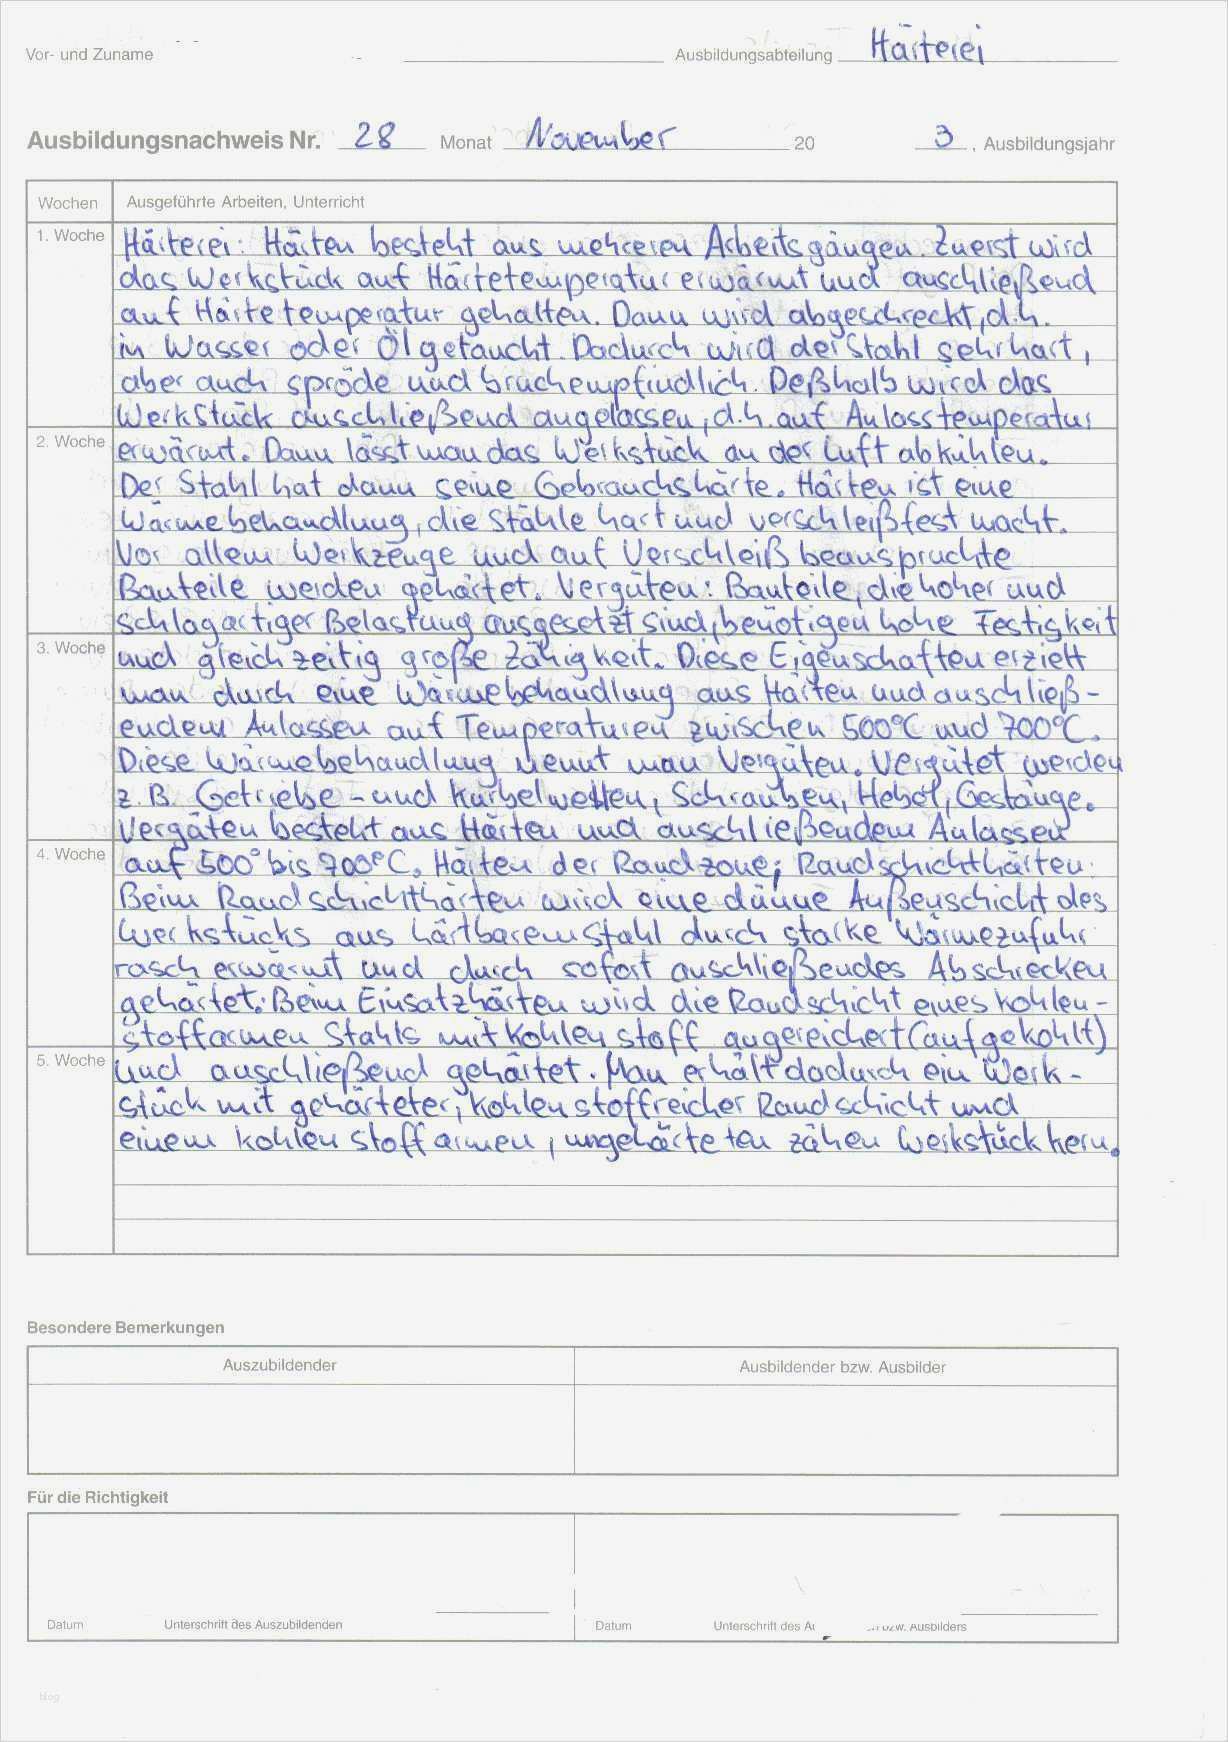 Vor- und Zuname Ausbildungsabteilung Härterei
Ausbildungsnachweis Nr. 28 Monat November 20 3 , Ausbildungsjahr
Wochen Ausgeführte Arbeiten, Unterricht
1. Woche Härterei: Härten besteht aus mehreren Arbeitsgängen. Zuerst wird
das Werkstück auf Härtetemperatur erwärmt und anschließend
auf Härtetemperatur gehalten. Dann wird abgeschreckt, d.h.
in Wasser oder Öl getaucht. Dadurch wird der Stahl sehr hart,
aber auch spröde und bruchempfindlich. Deßhalb wird das
Werkstück anschließend angelassen, d.h. auf Anlasstemperatur
2. Woche erwärmt. Dann lässt man das Werkstück an der Luft abkühlen.
Der Stahl hat dann seine Gebrauchshärte. Härten ist eine
Wärmebehandlung, die Stähle hart und verschleißfest macht.
Vor allem Werkzeuge und auf Verschleiß beanspruchte
Bauteile werden gehärtet. Vergüten: Bauteile, die hoher und
schlagartiger Belastung ausgesetzt sind, benötigen hohe Festigkeit
3. Woche und gleichzeitig große Zähigkeit. Diese Eigenschaften erzielt
man durch eine Wärmebehandlung aus Härten und anschließ-
endem Anlassen auf Temperaturen zwischen 500°C und 700°C.
Diese Wärmebehandlung nennt man Vergüten. Vergütet werden
z.B. Getriebe- und Kurbelwellen, Schrauben, Hebel, Gestänge.
Vergüten besteht aus Härten und anschließendem Anlassen
4. Woche auf 500° bis 700°C. Härten der Randzone; Randschichthärten:
Beim Randschichthärten wird eine dünne Außenschicht des
Werkstücks aus härtbarem Stahl durch starke Wärmezufuhr
rasch erwärmt und durch sofort anschließendes Abschrecken
gehärtet. Beim Einsatzhärten wird die Randschicht eines kohlen-
stoffarmen Stahls mit Kohlenstoff angereichert (aufgekohlt)
5. Woche und anschließend gehärtet. Man erhält dadurch ein Werk-
stück mit gehärteter, kohlenstoffreicher Randschicht und
einem kohlenstoffarmen, ungehärteten zähen Werkstückkern.
Besondere Bemerkungen
Auszubildender Ausbildender bzw. Ausbilder
Für die Richtigkeit
Datum Unterschrift des Auszubildenden Datum Unterschrift des bzw. Ausbilders
blog